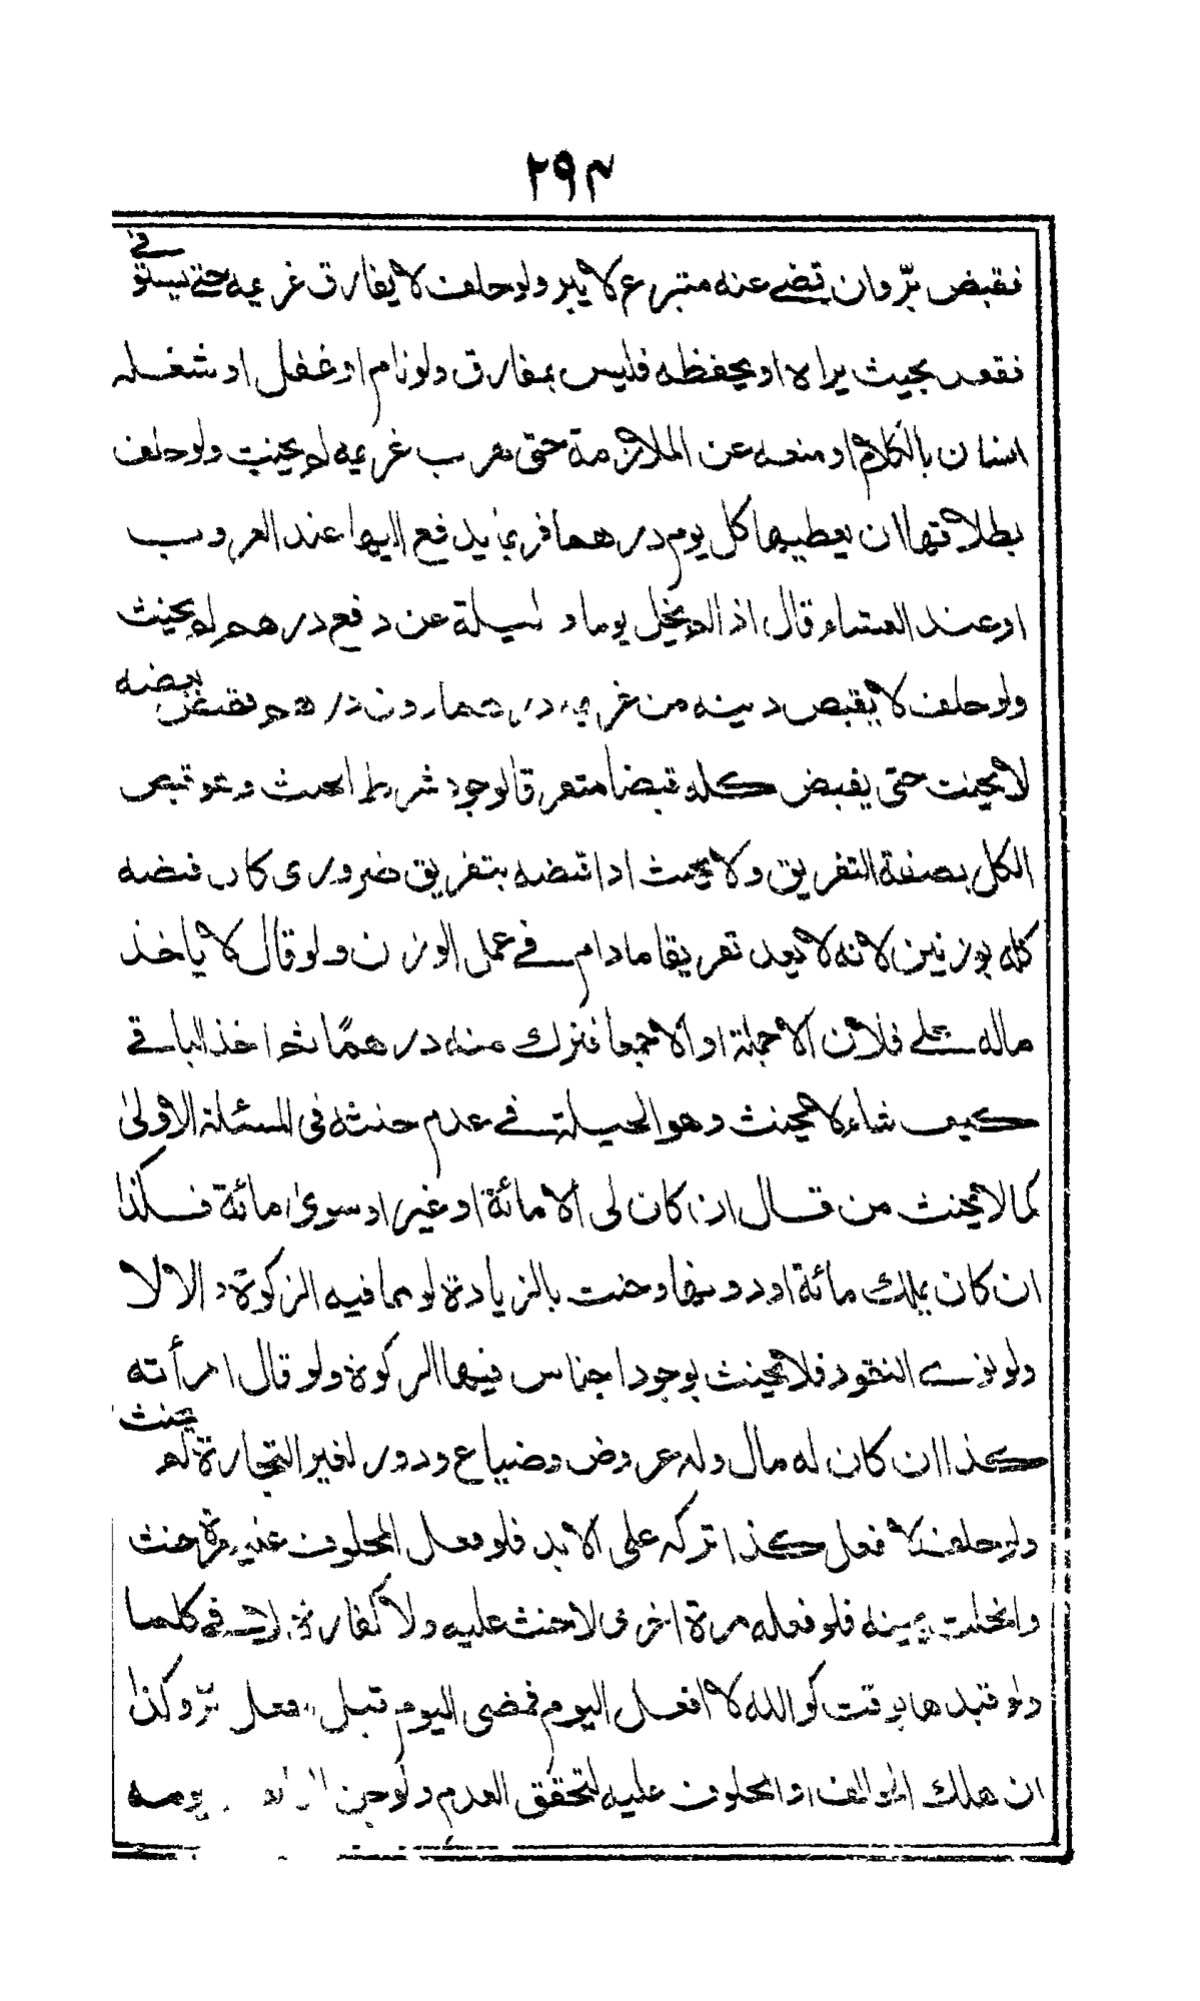 ٢٩٣
فقبض برّ وان قضے عنه متبرع لا يبر ولو حلف لا يفارق غريمه حتے يستوفے
فقعد بحيث يراه او يحفظه فليس بمفارق ولو نام او غفل او شغله
انسان بالكلام او منعه عن الملازمة حتى هرب غريمه لم يحنث ولو حلف
بطلاقها ان يعطيها كل يوم درهما فربما يدفع اليها عند الغروب
او عند العشاء قال اذا لم يخل يوما و ليلة عن دفع درهم لم يحنث
ولو حلف لا يقبض دينه من غريمه درهما دون درهم فقبض بعضه
لا يحنث حتى يقبض كله قبضا متفرقا لوجود شرط الحنث وهو قبض
الكل بصفة التفريق ولا يحنث اذا قبضه بتفريق ضرورى كان قبضه
كله بوزنين لانه لا يعد تفريقا مادام فے عمل الوزن ولو قال لا ياخذ
ماله علے فلان الا جملة او الا جمعا فترك منه درهمًا ثم اخذ الباقے
كيف شاء لا يحنث وهو الحيلة فے عدم حنثه فى المسئلة الاولىٰ
كما لا يحنث من قال ان كان لى الا مائة او غير او سوىٰ مائة فكذا
ان كان يملك مائة او دونها وحنث بالزيادة لو مما فيه الزكوة و الا لا
ولو نوے النقود فلا يحنث بوجود اجناس فيها الزكوة ولو قال امرأته
كذا ان كان له مال وله عروض وضياع ودور لغير التجارة لم يحنث
ولو حلف لا فعل كذا تركه على الابد فلو فعل المحلوف عليه مرة حنث
وانحلت يمينه فلو فعله مرة اخرى لا حنث عليه ولا كفارة الا فے كلما
ولو قيدها بوقت كوالله لا افعل اليوم فمضى اليوم قبل الفعل برّ وكذا
ان هلك الحالف او المحلوف عليه لتحقق العدم ولو جن يومه